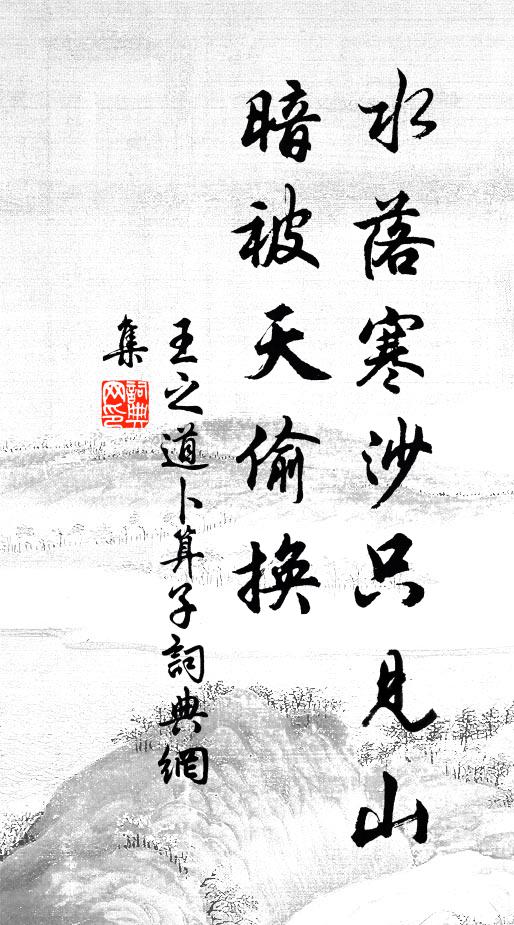 水落寒沙只見山
暗被天偷換
王之道卜算子詞典網
集
詞典
网印